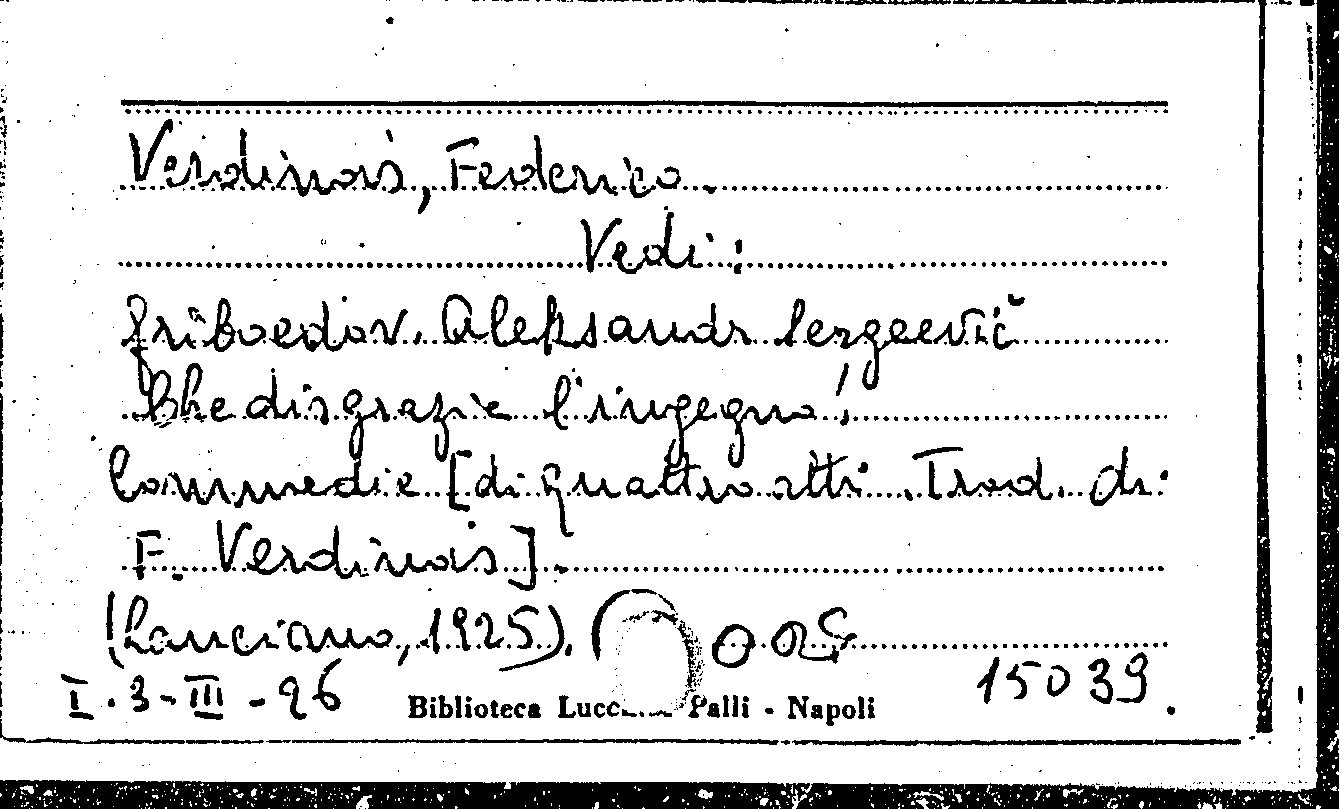 Verdinois, Federico.
Vedi:
Griboedov. Aleksandr Sergeevič
Che disgrazia l'ingegno!
Commedia [di quattro atti. Trad. di
F. Verdinois].
(Lanciano, 1925).
I. 3-III-26
Biblioteca Palli - Napoli
15039.